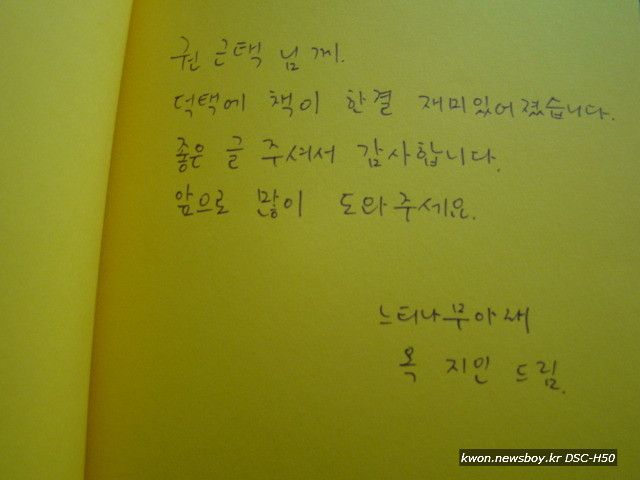 권 근택 님께.
덕택에 책이 한결 재미있어졌습니다.
좋은 글 주셔서 감사합니다.
앞으로 많이 도와주세요.
느티나무아래
옥 지인 드림.
kwon.newsboy.kr DSC-H50